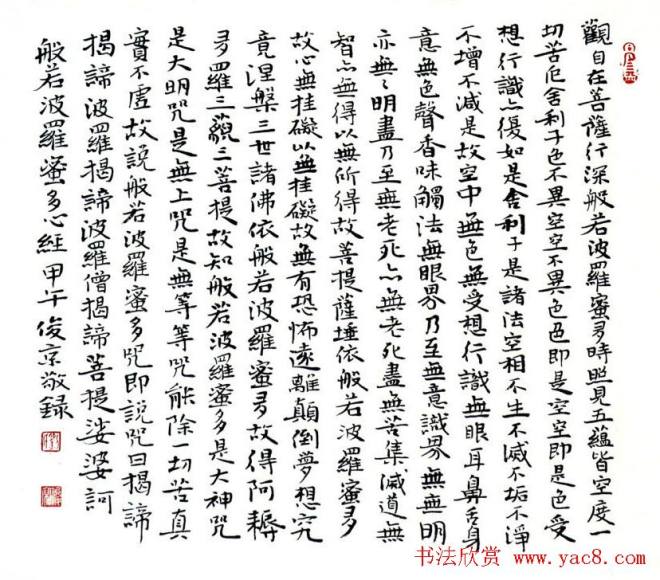 觀自在菩薩行深般若波羅蜜多時照見五蘊皆空度一
切苦厄舍利子色不異空空不異色色即是空空即是色受
想行識亦復如是舍利子是諸法空相不生不滅不垢不淨
不增不減是故空中無色無受想行識無眼耳鼻舌身
意無色聲香味觸法無眼界乃至無意識界無無明
亦無々明盡乃至無老死亦無老死盡無苦集滅道無
智亦無得以無所得故菩提薩埵依般若波羅蜜多
故心無挂礙以無挂礙故無有恐怖遠離顛倒夢想究
竟涅槃三世諸佛依般若波羅蜜多故得阿耨
多羅三藐三菩提故知般若波羅蜜多是大神咒
是大明咒是無上咒是無等等咒能除一切苦真
實不虛故說般若波羅蜜多咒即說咒曰揭諦
揭諦波羅揭諦波羅僧揭諦菩提娑婆訶
般若波羅蜜多心經甲午俊京敬錄
书法欣赏 www.yac8.com